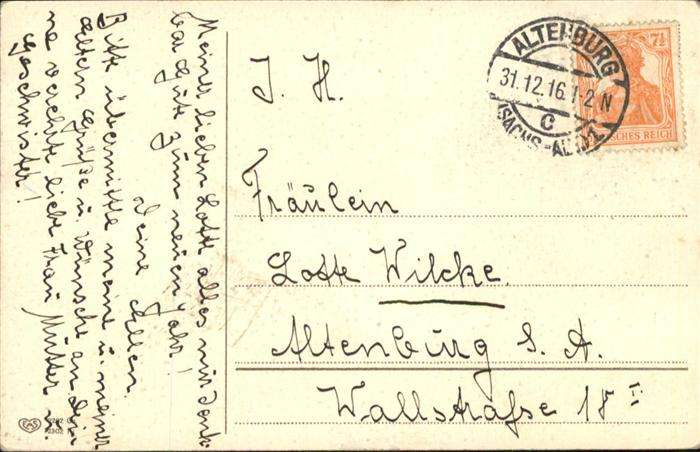 Meiner lieben Lotte alles nur denk-
bar Gute zum neuen Jahr!
Deine Ellen.
Bitte übermittle meine u. meiner
Eltern Grüße u. Wünsche an Dei-
ne verehrte liebe Frau Mutter u.
Geschwister!
J. H.
Fräulein
Lotte Wilcke.
Altenburg S. A.
Wallstraße 18 II
ALTENBURG
31.12.16. 1-2 N
C
(SACHS.-ALT.) 1
7½
REICH
EAS